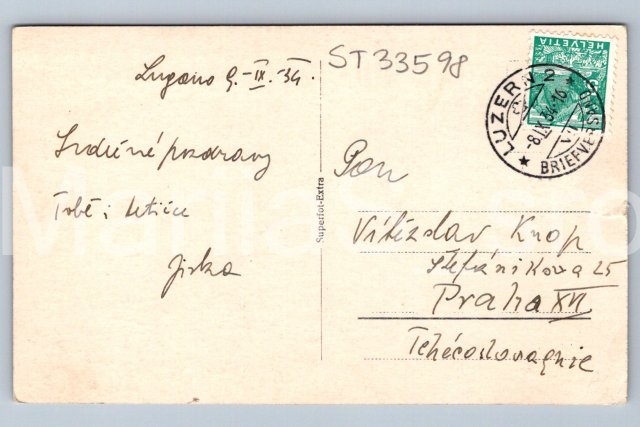 Lugano 9.-IX.34.
ST33598
Srdečné pozdravy
Tobě i tetičce
Jirka
Pan
Vítězslav Knop
Štefánikova 25
Praha XVI
Tchécoslovaquie
Superfot-Extra
HELVETIA
LUZERN 2
-8.IX.34-16
BRIEFVERS